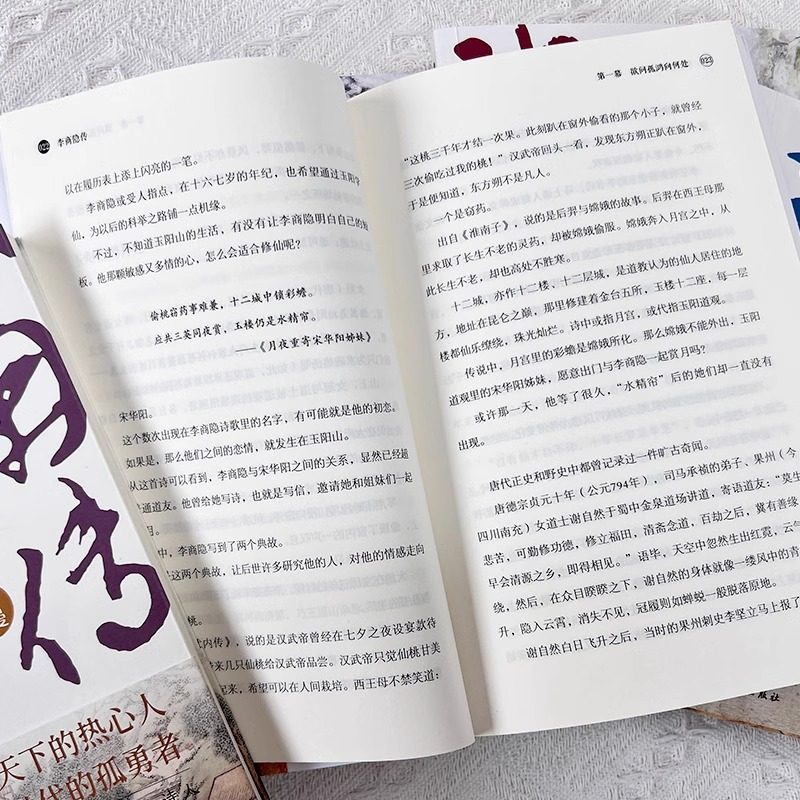 022 李商隐传
以在履历表上添上闪亮的一笔。
李商隐或受人指点，在十六七岁的年纪，也希望通过玉阳学
仙，为以后的科举之路铺一点机缘。
不过，不知道玉阳山的生活，有没有让李商隐明白自己的短
板。他那颗敏感又多情的心，怎么会适合修仙呢？
偷桃窃药事难兼，十二城中锁彩蟾。
应共三英同夜赏，玉楼仍是水精帘。
——《月夜重寄宋华阳姊妹》
宋华阳。
这个数次出现在李商隐诗歌里的名字，有可能就是他的初恋。
如果是，那么他们之间的恋情，就发生在玉阳山。
从这首诗可以看到，李商隐与宋华阳之间的关系，显然已经超
普通道友。他曾给她写诗，也就是写信，邀请她和姐妹们一起
月。
中，李商隐写到了两个典故。
这两个典故，让后世许多研究他的人，对他的情感走向
桃。
内传》，说的是汉武帝曾经在七夕之夜设宴款待
来几只仙桃给汉武帝品尝。汉武帝只觉仙桃甘美
起来，希望可以在人间栽培。西王母不禁笑道：
第一幕 欲问孤鸿向何处 023
“这桃三千年才结一次果。此刻趴在窗外偷看的那个小子，就曾经
三次偷吃过我的桃！”汉武帝回头一看，发现东方朔正趴在窗外，
于是便知道，东方朔不是凡人。
一个是窃药。
出自《淮南子》，说的是后羿与嫦娥的故事。后羿在西王母那
里求取了长生不老的灵药，却被嫦娥偷服。嫦娥奔入月宫之中，从
此长生不老，却也高处不胜寒。
十二城，亦作十二楼、十二层城，是道教认为的仙人居住的地
方，地址在昆仑之巅，那里修建着金台五所，玉楼十二座，每一层
楼都仙乐缭绕，珠光灿烂。诗中或指月宫，或代指玉阳道观。
传说中，月宫里的彩蟾是嫦娥所化。那么嫦娥不能外出，玉阳
道观里的宋华阳姊妹，愿意出门与李商隐一起赏月吗？
或许那一天，他等了很久，“水精帘”后的她们却一直没有
出现。
唐代正史和野史中都曾记录过一件旷古奇闻。
唐德宗贞元十年（公元794年），司马承祯的弟子、果州（今
四川南充）女道士谢自然于蜀中金泉道场讲道，寄语道友：“莫生
悲苦，可勤修功德，修立福田，清斋念道，百劫之后，冀有善缘
早会清源之乡，即得相见。”语毕，天空中忽然生出红霓，云气
绕，然后，在众目睽睽之下，谢自然的身体就像一缕风中的青
升，隐入云霄，消失不见，冠履则如蝉蜕一般脱落原地。
谢自然白日飞升之后，当时的果州刺史李坚立马上报了
传
天下的热心人
代的孤勇者
出版社